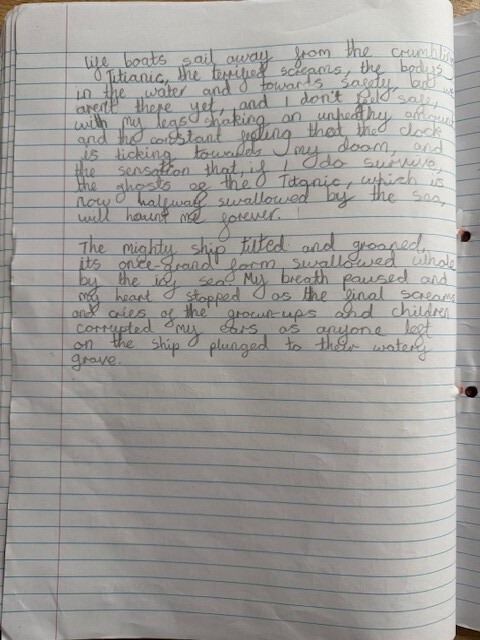 life boats sail away from the crumbling
Titianic, the terrified screams, the bodys
in the water and towards safety, but we
arent there yet, and I don't feel safe,
with my legs shaking an unhealthy amount
and the constant feeling that the clock
is ticking towards my doom, and
the sensation that, if I do survive,
the ghosts of the Titanic, which is
now halfway swallowed by the sea,
will haunt me forever.
The mighty ship tilted and groaned,
its once-grand form swallowed whole
by the icy sea. My breath paused and
my heart stopped as the final screams
and cries of the grown-ups and children
corrupted my ears as anyone left
on the ship plunged to their watery
grave.